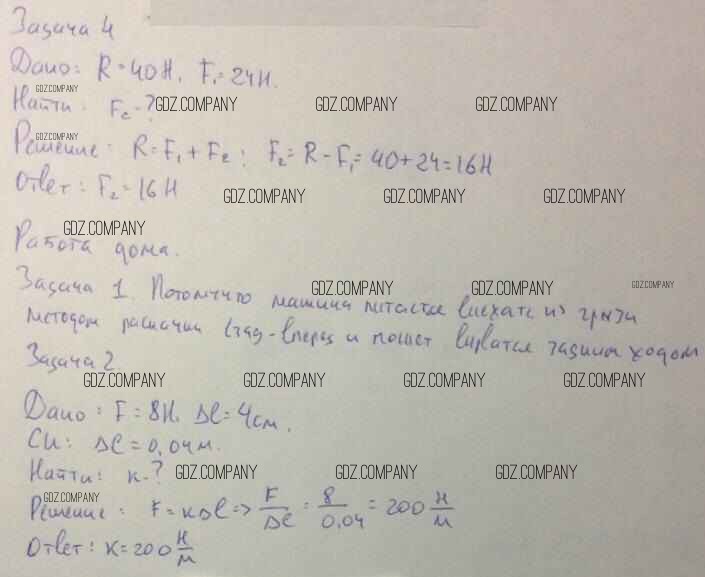 Задача 4
Дано: R = 40 Н, F₁ = 24 Н.
GDZ.COMPANY
Найти: F₂ - ? GDZ.COMPANY GDZ.COMPANY GDZ.COMPANY
GDZ.COMPANY
Решение: R = F₁ + F₂; F₂ = R - F₁ = 40 + 24 = 16 Н
Ответ: F₂ = 16 Н GDZ.COMPANY GDZ.COMPANY GDZ.COMPANY
GDZ.COMPANY
Работа дома.
GDZ.COMPANY GDZ.COMPANY GDZ.COMPANY
Задача 1. Потомучто машина питается виехать из грязи
методом раскачки взад-вперед и может вырватся задним ходом
Задача 2
GDZ.COMPANY GDZ.COMPANY GDZ.COMPANY GDZ.COMPANY
Дано: F = 8 Н. Δl = 4 см.
Си: Δl = 0,04 м.
Найти: к - ? GDZ.COMPANY GDZ.COMPANY GDZ.COMPANY
GDZ.COMPANY
Решение: F = кΔl => F/Δl = 8/0,04 = 200 Н/м
Ответ: к = 200 Н/м